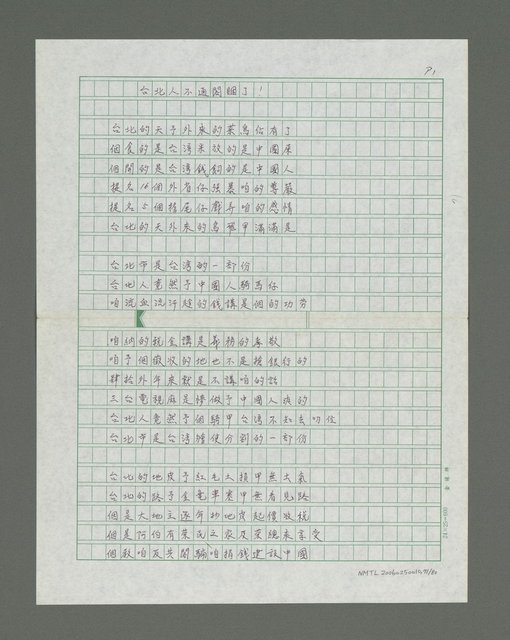 P1
台北人不通閣睏了!
台北的天予外來的烏仔占有了
個食的是台灣米放的是中國屎
個開的是台灣錢的是中國人
提名16個外省仔強暴咱的尊嚴
提名5個仔戲弄咱的感情
台北的天外來的烏鴉甲滿滿是
台北市是台灣的一部份
台北人竟然予中國人騎馬仔
咱流血流汗的錢講是個的功勞
咱納的稅金講是義務的奉獻
咱予個徵收的地也不是搶銀行的
肆拾外年來就是不講咱的話
三台電視麻是做予中國人看的
台北人竟然予個騎甲台灣不知去叨位
台北市是台灣分割的一部份
台北的地皮予紅毛土損甲無土氣
台北的路予電車甲無看見路
個是大地主逐年地皮起價收稅
個是阿伯有葉民之家及榮總來享受
個教咱反共閣騙咱捐錢建設中國
NMTL